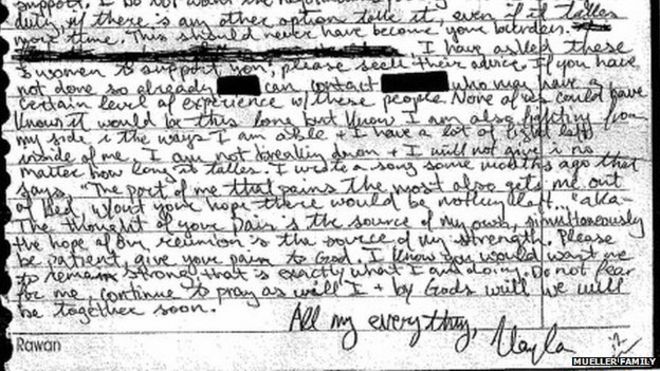 support. I do not want the negotiations
duty, if there is any other option take it, even if it takes
more time. This should never have become your burden.
I have asked these
women to support you, please seek their advice. If you have
not done so already can contact who may have a
certain level of experience w/ these people. None of us could have
known it would be this long but know I am also fighting from
my side in the ways I am able + I have a lot of fight left
inside of me. I am not breaking down + I will not give in no
matter how long it takes. I wrote a song some months ago that
says, "The part of me that pains the most also gets me out
of bed, w/out your hope there would be nothing left..." aka-
The thought of your pain is the source of my own, simultaneously
the hope of our reunion is the source of my strength. Please
be patient, give your pain to God. I know you would want me
to remain strong that is exactly what I am doing. Do not fear
for me, continue to pray as will I + by Gods will we will
be together soon.
All my everything,
Kayla
Rawan
MUELLER FAMILY